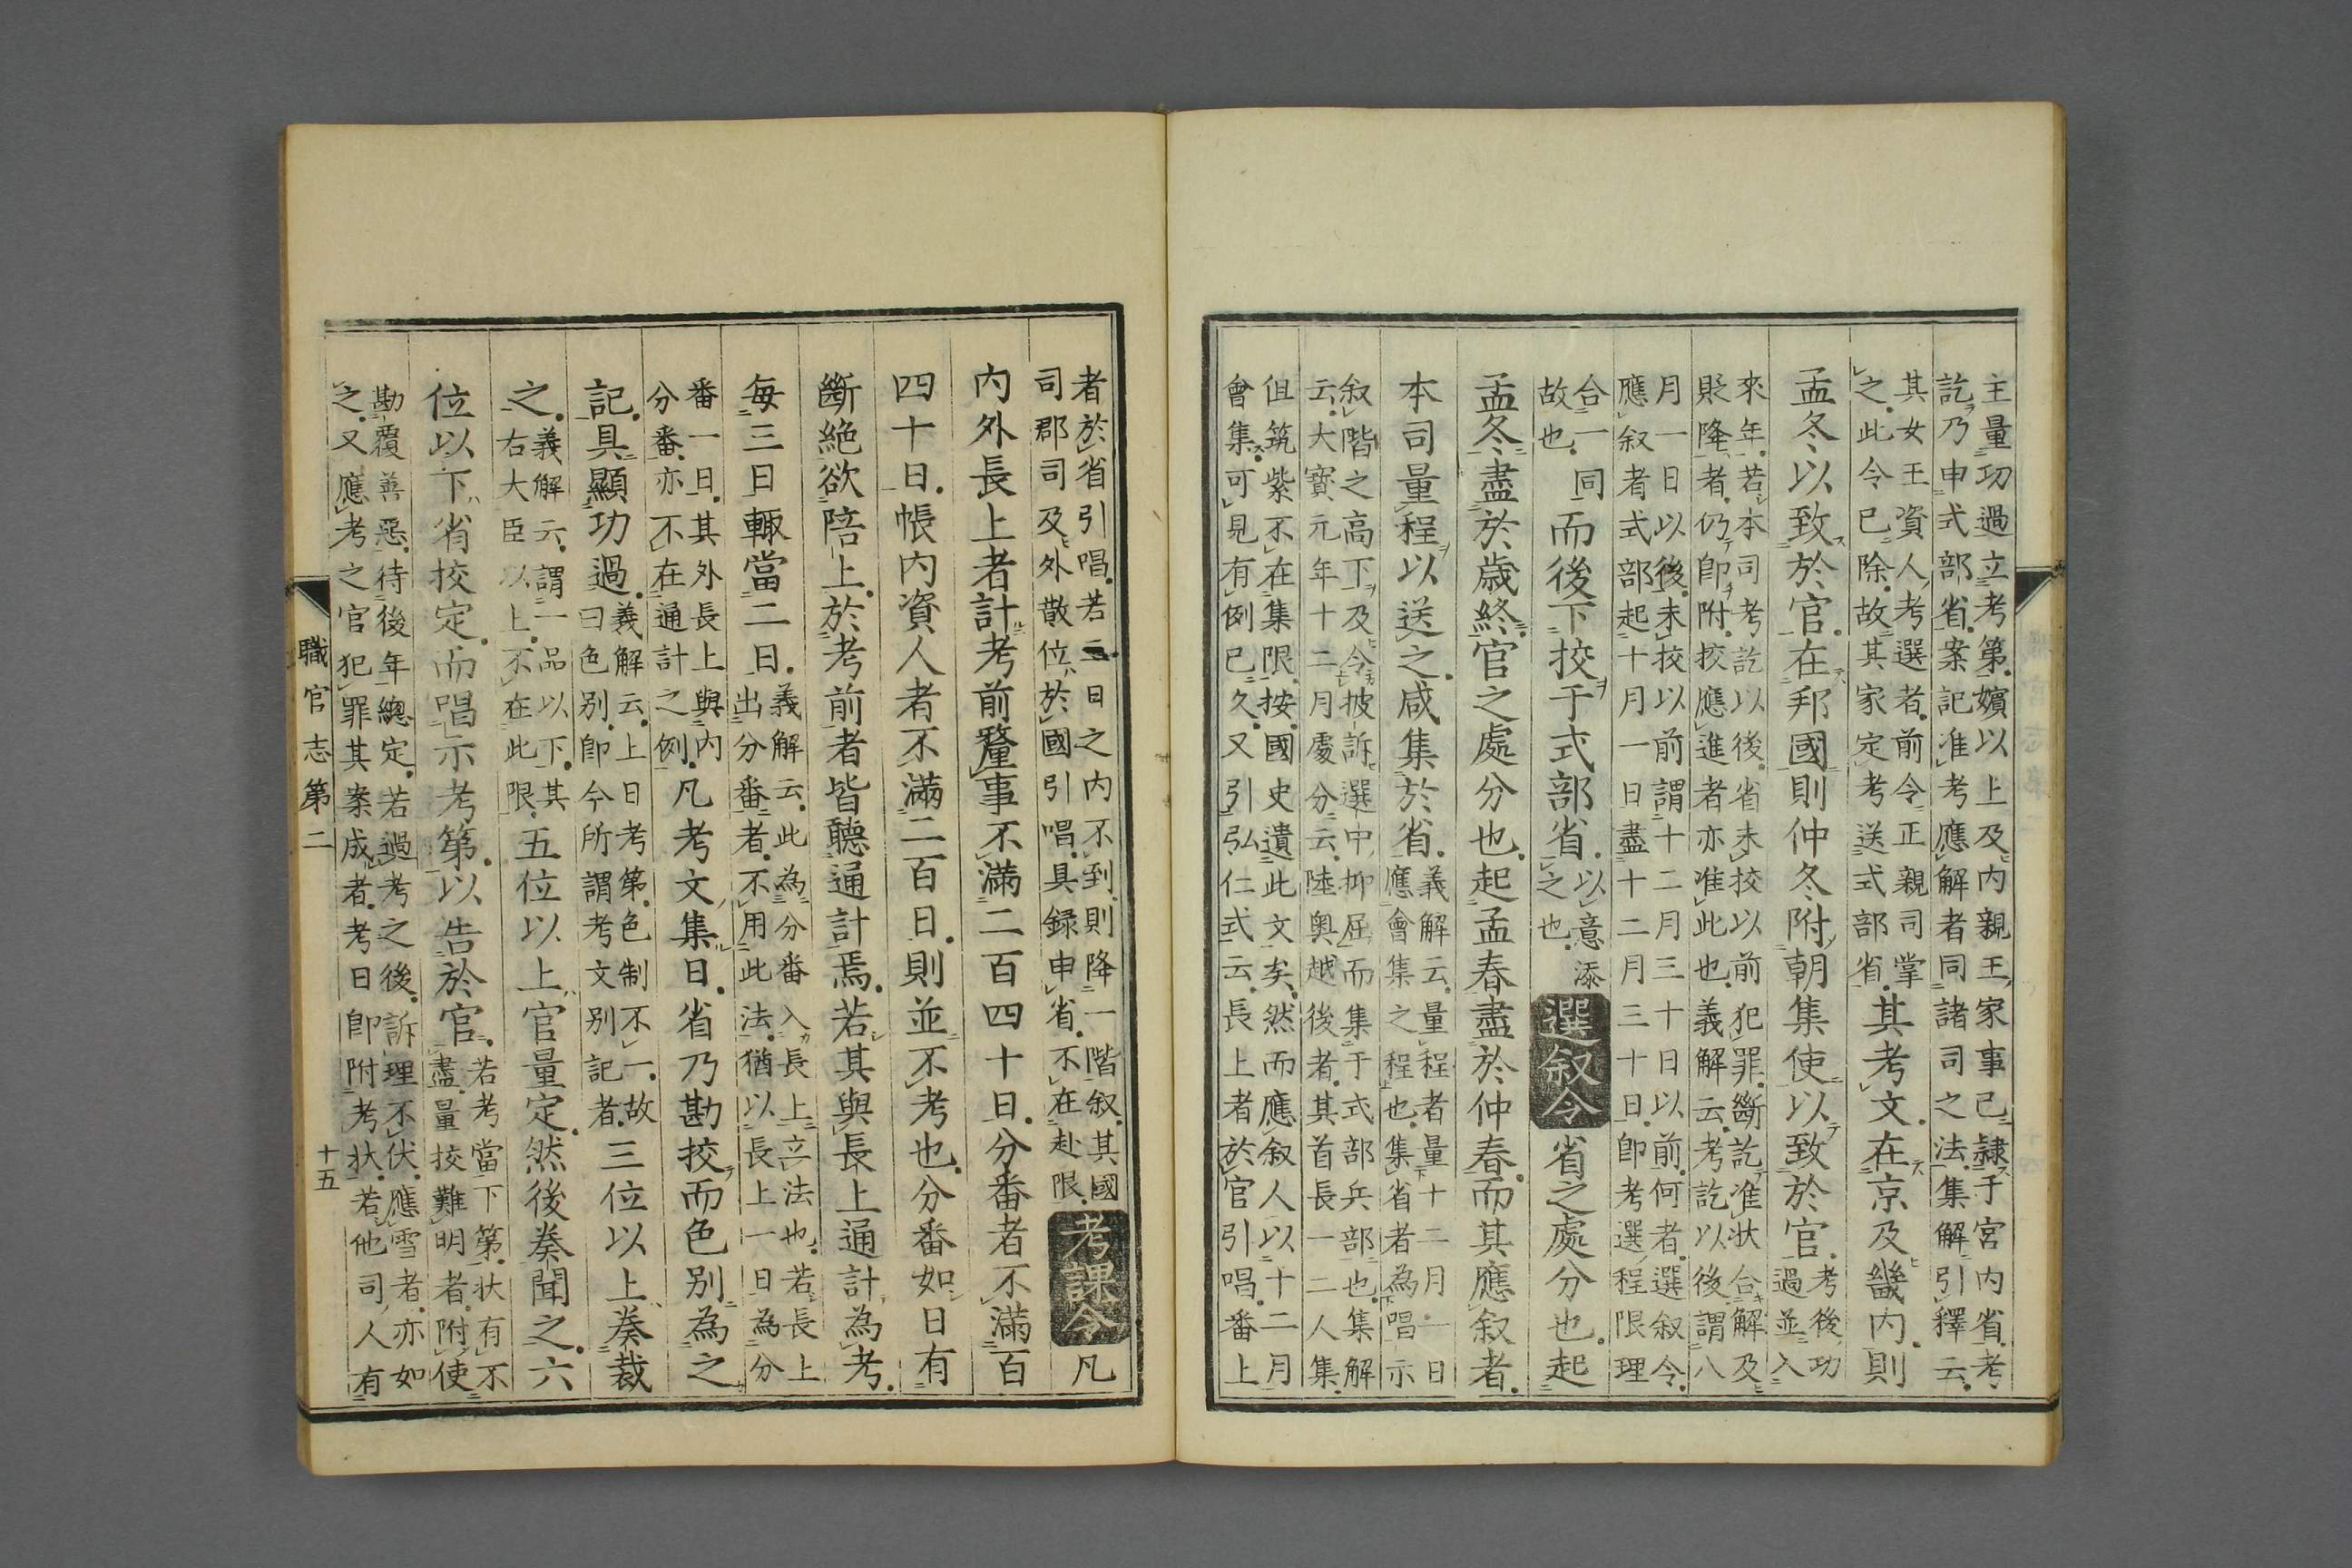 主量功過立考第嬪以上及内親王家事已隷于宮内省考
訖乃申式部省案記准考應解者同諸司之法集解引釋云
其女王資人考選者前令正親司掌
之此令已除故其家定考送式部省其考文在京及畿内則
孟冬以致於官在邦國則仲冬附朝集使以致於官考後功
過並入
來年若本司考訖以後省未校以前犯罪斷訖准状合解及
貶降者仍即附校應進者亦准此也義解云考訖以後謂八
月一日以後未校以前謂十二月三十日以前何者選叙令
應叙者式部起十月一日盡十二月三十日即考選程限理
合一同
故也而後下校于式部省以意添
之也選叙令省之處分也起
孟冬盡於歳終官之處分也起孟春盡於仲春而其應叙者
本司量程以送之咸集於省義解云量程者量十二月一日
應會集之程也集省者為唱示
叙階之高下及令披訴選中抑屈而集于式部兵部也集解
云大寳元年十二月處分云陸奥越後者其首長一二人集
但筑紫不在集限按國史遺此文矣然而應叙人以十二月
會集可見有例已久又引弘仁式云長上者於官引唱番上
者於省引唱若三日之内不到則降一階叙其國
司郡司及外散位於國引唱具録申省不在赴限考課令凡
内外長上者計考前釐事不滿二百四十日分番者不滿百
四十日帳内資人者不滿二百日則並不考也分番如日有
斷絶欲陪上於考前者皆聽通計焉若其與長上通計為考
每三日輙當二日義解云此為分番入長上立法也若長上
出分番者不用此法猶以長上一日為分
番一日其外長上與内
分番亦不在通計之例凡考文集日省乃勘校而色別為之
記具顯功過義解云上日考第色制不一故
曰色別即今所謂考文別記者三位以上奏裁
之義解云謂一品以下其
右大臣以上不在此限五位以上官量定然後奏聞之六
位以下省校定而唱示考第以告於官若考當下第状有不
盡量校難明者附使
勘覆善惡待後年總定若過考之後訴理不伏應雪者亦如
之又應考之官犯罪其案成者考日即附考状若他司人有
職官志第二
十五